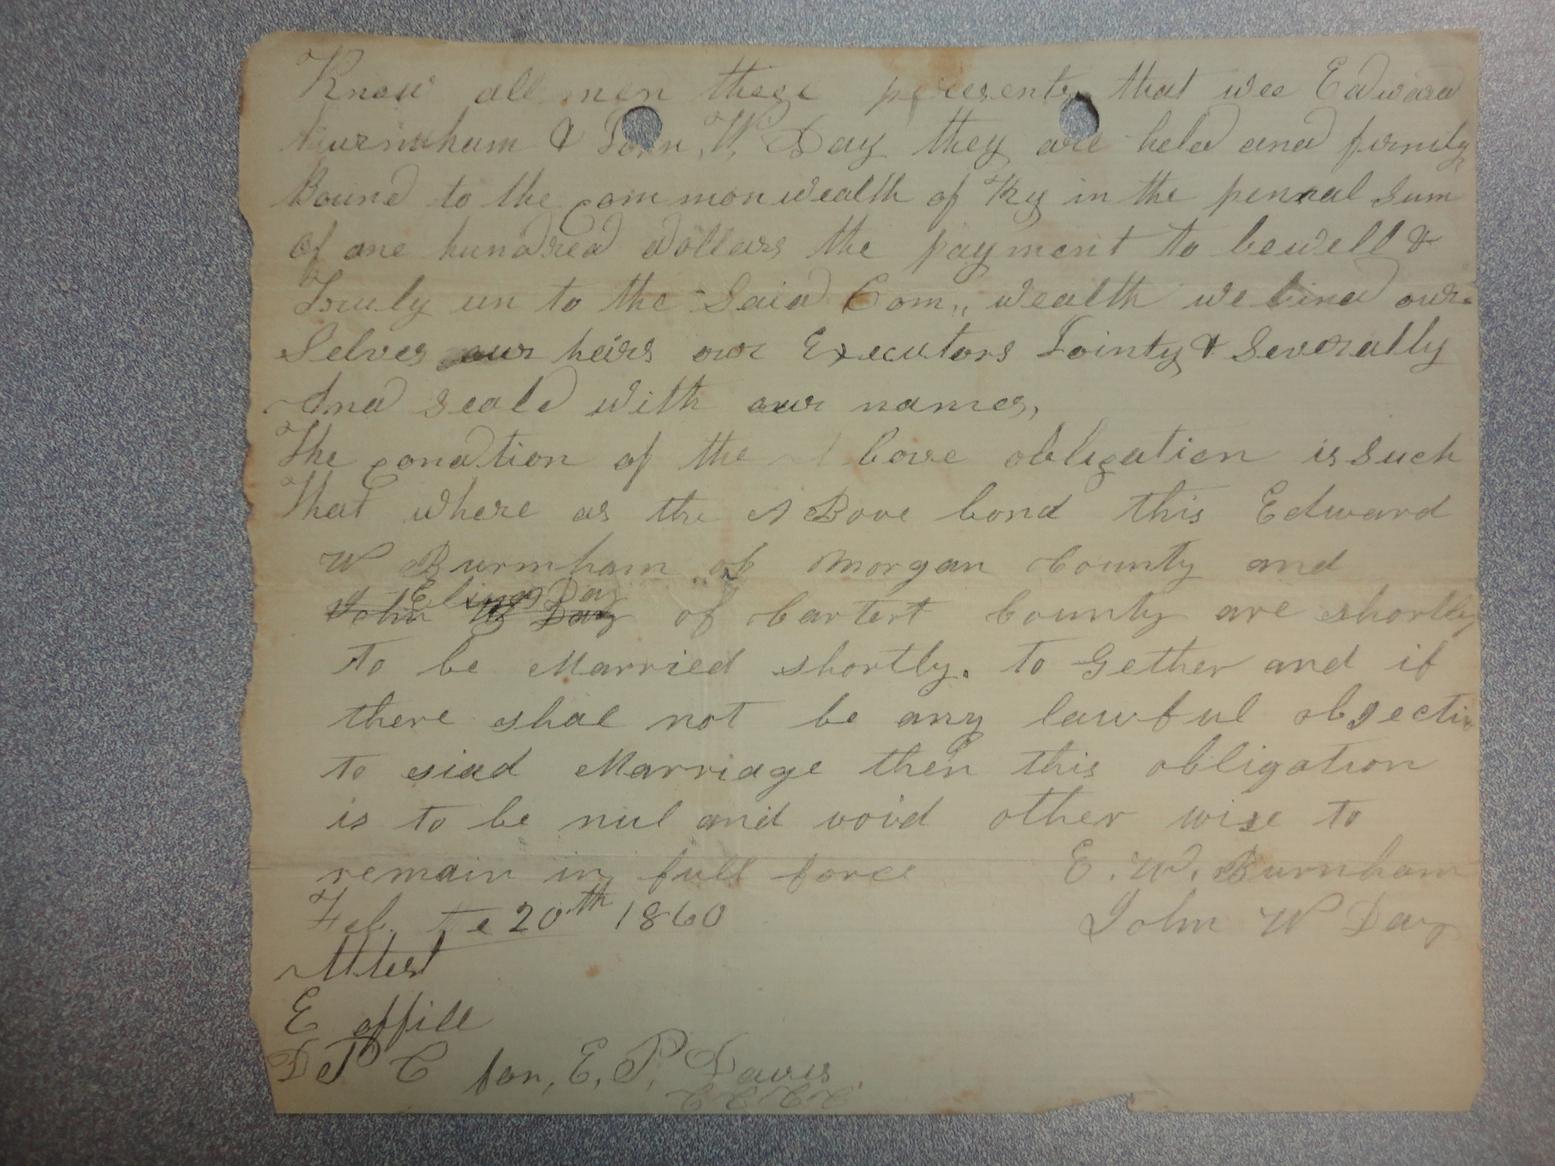 Know all men these presents that wee Edward
Burnham & John W. Day they are held and firmly
Bound to the common wealth of Ky in the pennal Sum
of one hundred dollars the payment to be well &
Truly un to the Said Com,, wealth we bind our
Selves our heirs our Executors Jointy & Severally
And Seald with our names,
The condition of the A bove obligation is such
That where as the A Bove bond this Edward
W Burnham of Morgan County and
Day
John W Day of Cartert County are shortly
To be Married shortly. to Gether and if
there shal not be any lawful objectio
to siad Marriage then this obligation
is to be nul and void other wise to
remain in full force E. W. Burnham
Feb. te 20th 1860 John W Day
Attest
E office
D P C for, E. P. Davis
C C C C